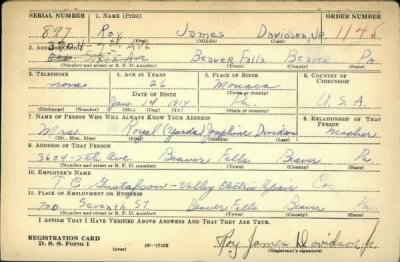 SERIAL NUMBER 1. NAME (Print) ORDER NUMBER
897 Roy James Davidson, Jr. 1145
(First) (Middle) (Last)
2. ADDRESS (Print)
3304-7th Ave Beaver Falls Beaver Pa.
(Number and street or R. F. D. number) (Town) (County) (State)
3. TELEPHONE 4. AGE IN YEARS 5. PLACE OF BIRTH 6. COUNTRY OF CITIZENSHIP
none 26 Monaca
DATE OF BIRTH
Jan 14 1914 Pa. U.S.A.
(Exchange) (Number) (Mo.) (Day) (Yr.) (State or country)
7. NAME OF PERSON WHO WILL ALWAYS KNOW YOUR ADDRESS 8. RELATIONSHIP OF THAT PERSON
Mrs. Josephine Davidson Mother
(Mr., Mrs., Miss) (First) (Middle) (Last)
9. ADDRESS OF THAT PERSON
3604-7th Ave Beaver Falls Beaver Pa
(Number and street or R. F. D. number) (Town) (County) (State)
10. EMPLOYER'S NAME
T. C. Gustafson - Valley Co.
11. PLACE OF EMPLOYMENT OR BUSINESS
720 Seventh St Beaver Falls Beaver Pa
(Number and street or R. F. D. number) (Town) (County) (State)
I AFFIRM THAT I HAVE VERIFIED ABOVE ANSWERS AND THAT THEY ARE TRUE.
REGISTRATION CARD
D. S. S. Form 1 (over) 16-17105
Roy James Davidson Jr.
(Registrant's signature)